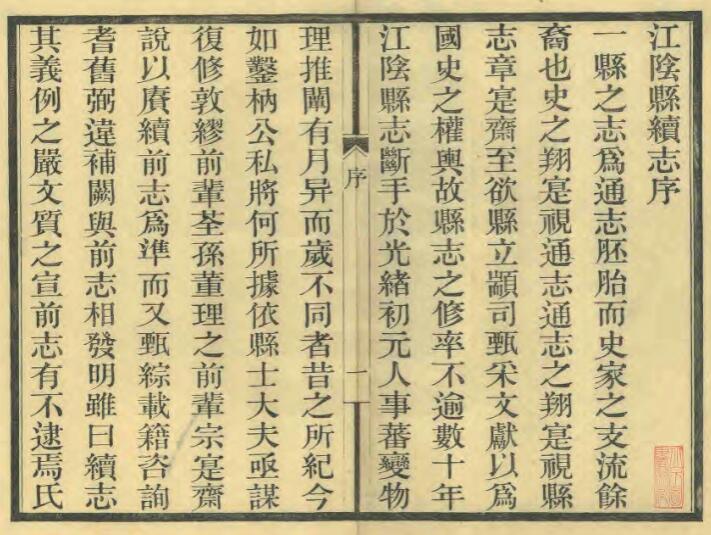 江陰縣續志序
一縣之志爲通志胚胎而史家之支流餘
裔也史之翔寔視通志通志之翔寔視縣
志章寔齋至欲縣立顓司甄采文獻以爲
國史之權輿故縣志之修率不逾數十年
江陰縣志斷手於光緒初元人事蕃變物
序
一
理推闡有月异而歲不同者昔之所紀今
如鑿枘公私將何所據依縣士大夫亟謀
復修敦繆前輩荃孫董理之前輩宗寔齋
說以賡續前志爲準而又甄綜載籍咨詢
耆舊弼違補闕與前志相發明雖曰續志
其義例之嚴文質之宣前志有不逮焉氏